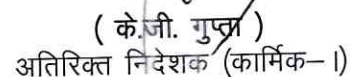 ( के.जी. गुप्ता )
अतिरिक्त निदेशक (कार्मिक–I)